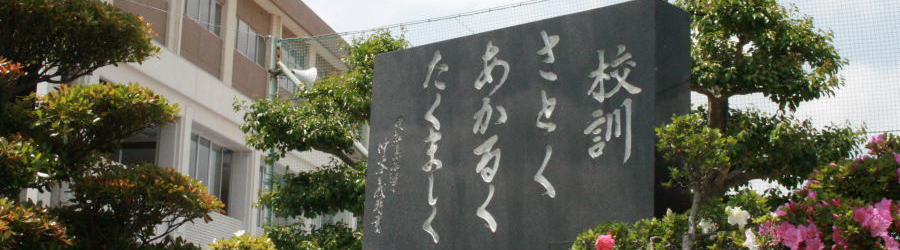 校訓
さとく
あかるく
たくましく